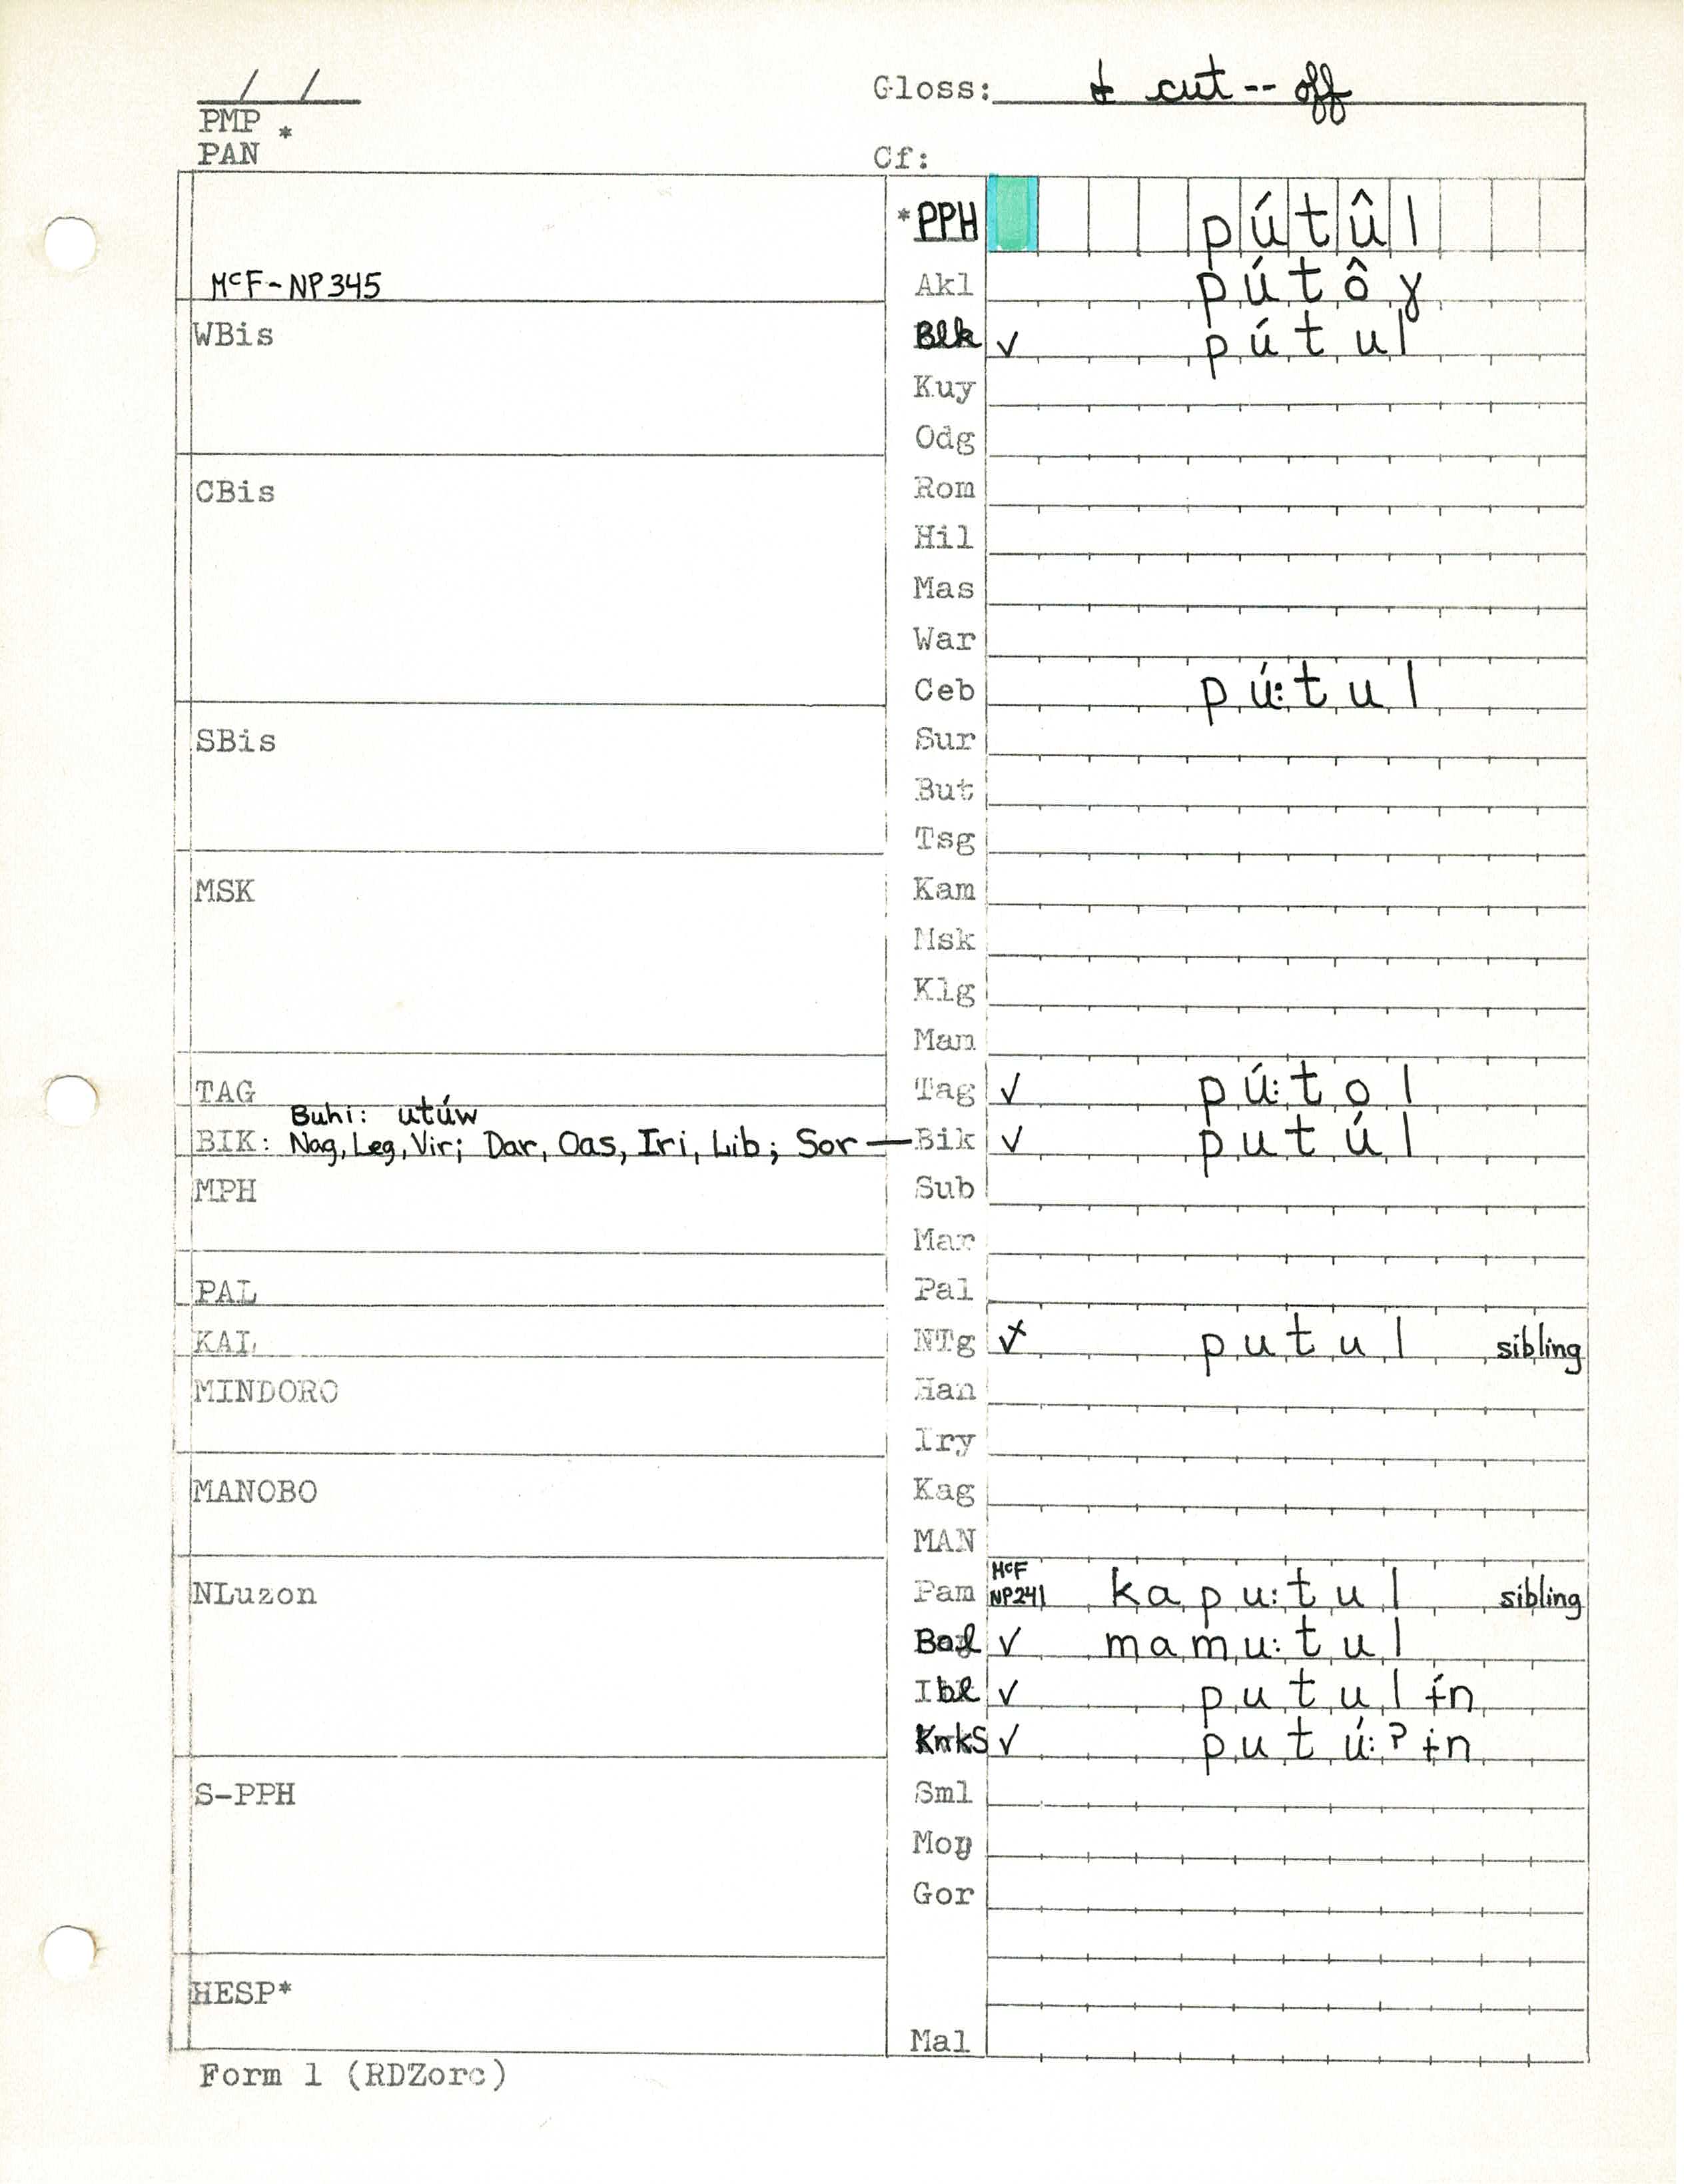 / /
Gloss: to cut -- off
PMP *
PAN
Cf:
*PPH pútûl
McF-NP345
Akl pútôɣ
WBis
Blk ✓ pútul
Kuy
Odg
CBis
Rom
Hil
Mas
War
Ceb pú:tul
SBis
Sur
But
Tsg
MSK
Kam
Msk
Klg
Man
TAG
Tag ✓ pú:tol
Buhi: utúw
BIK: Nag, Leg, Vir; Dar, Oas, Iri, Lib; Sor — Bik ✓ putúl
MPH
Sub
Mar
PAL
Pal
KAL
NTg putul sibling
MINDORO
Han
Iry
MANOBO
Kag
MAN
NLuzon
Pam McF NP241 kapu:tul sibling
✓ mamu:tul
Ibl ✓ putulɨn
KnkS ✓ putú:ʔɨn
S-PPH
Sml
Moŋ
Gor
HESP*
Mal
Form 1 (RDZorc)